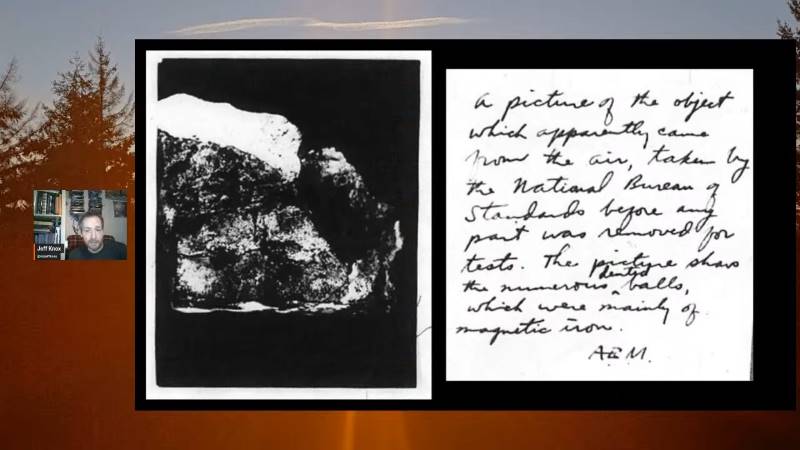 Jeff Knox
A picture of the object
which apparently came
from the air, taken by
the National Bureau of
Standards before any
part was removed for
tests. The picture shows
the numerous dents balls,
which were mainly of
magnetic iron.
A E M.